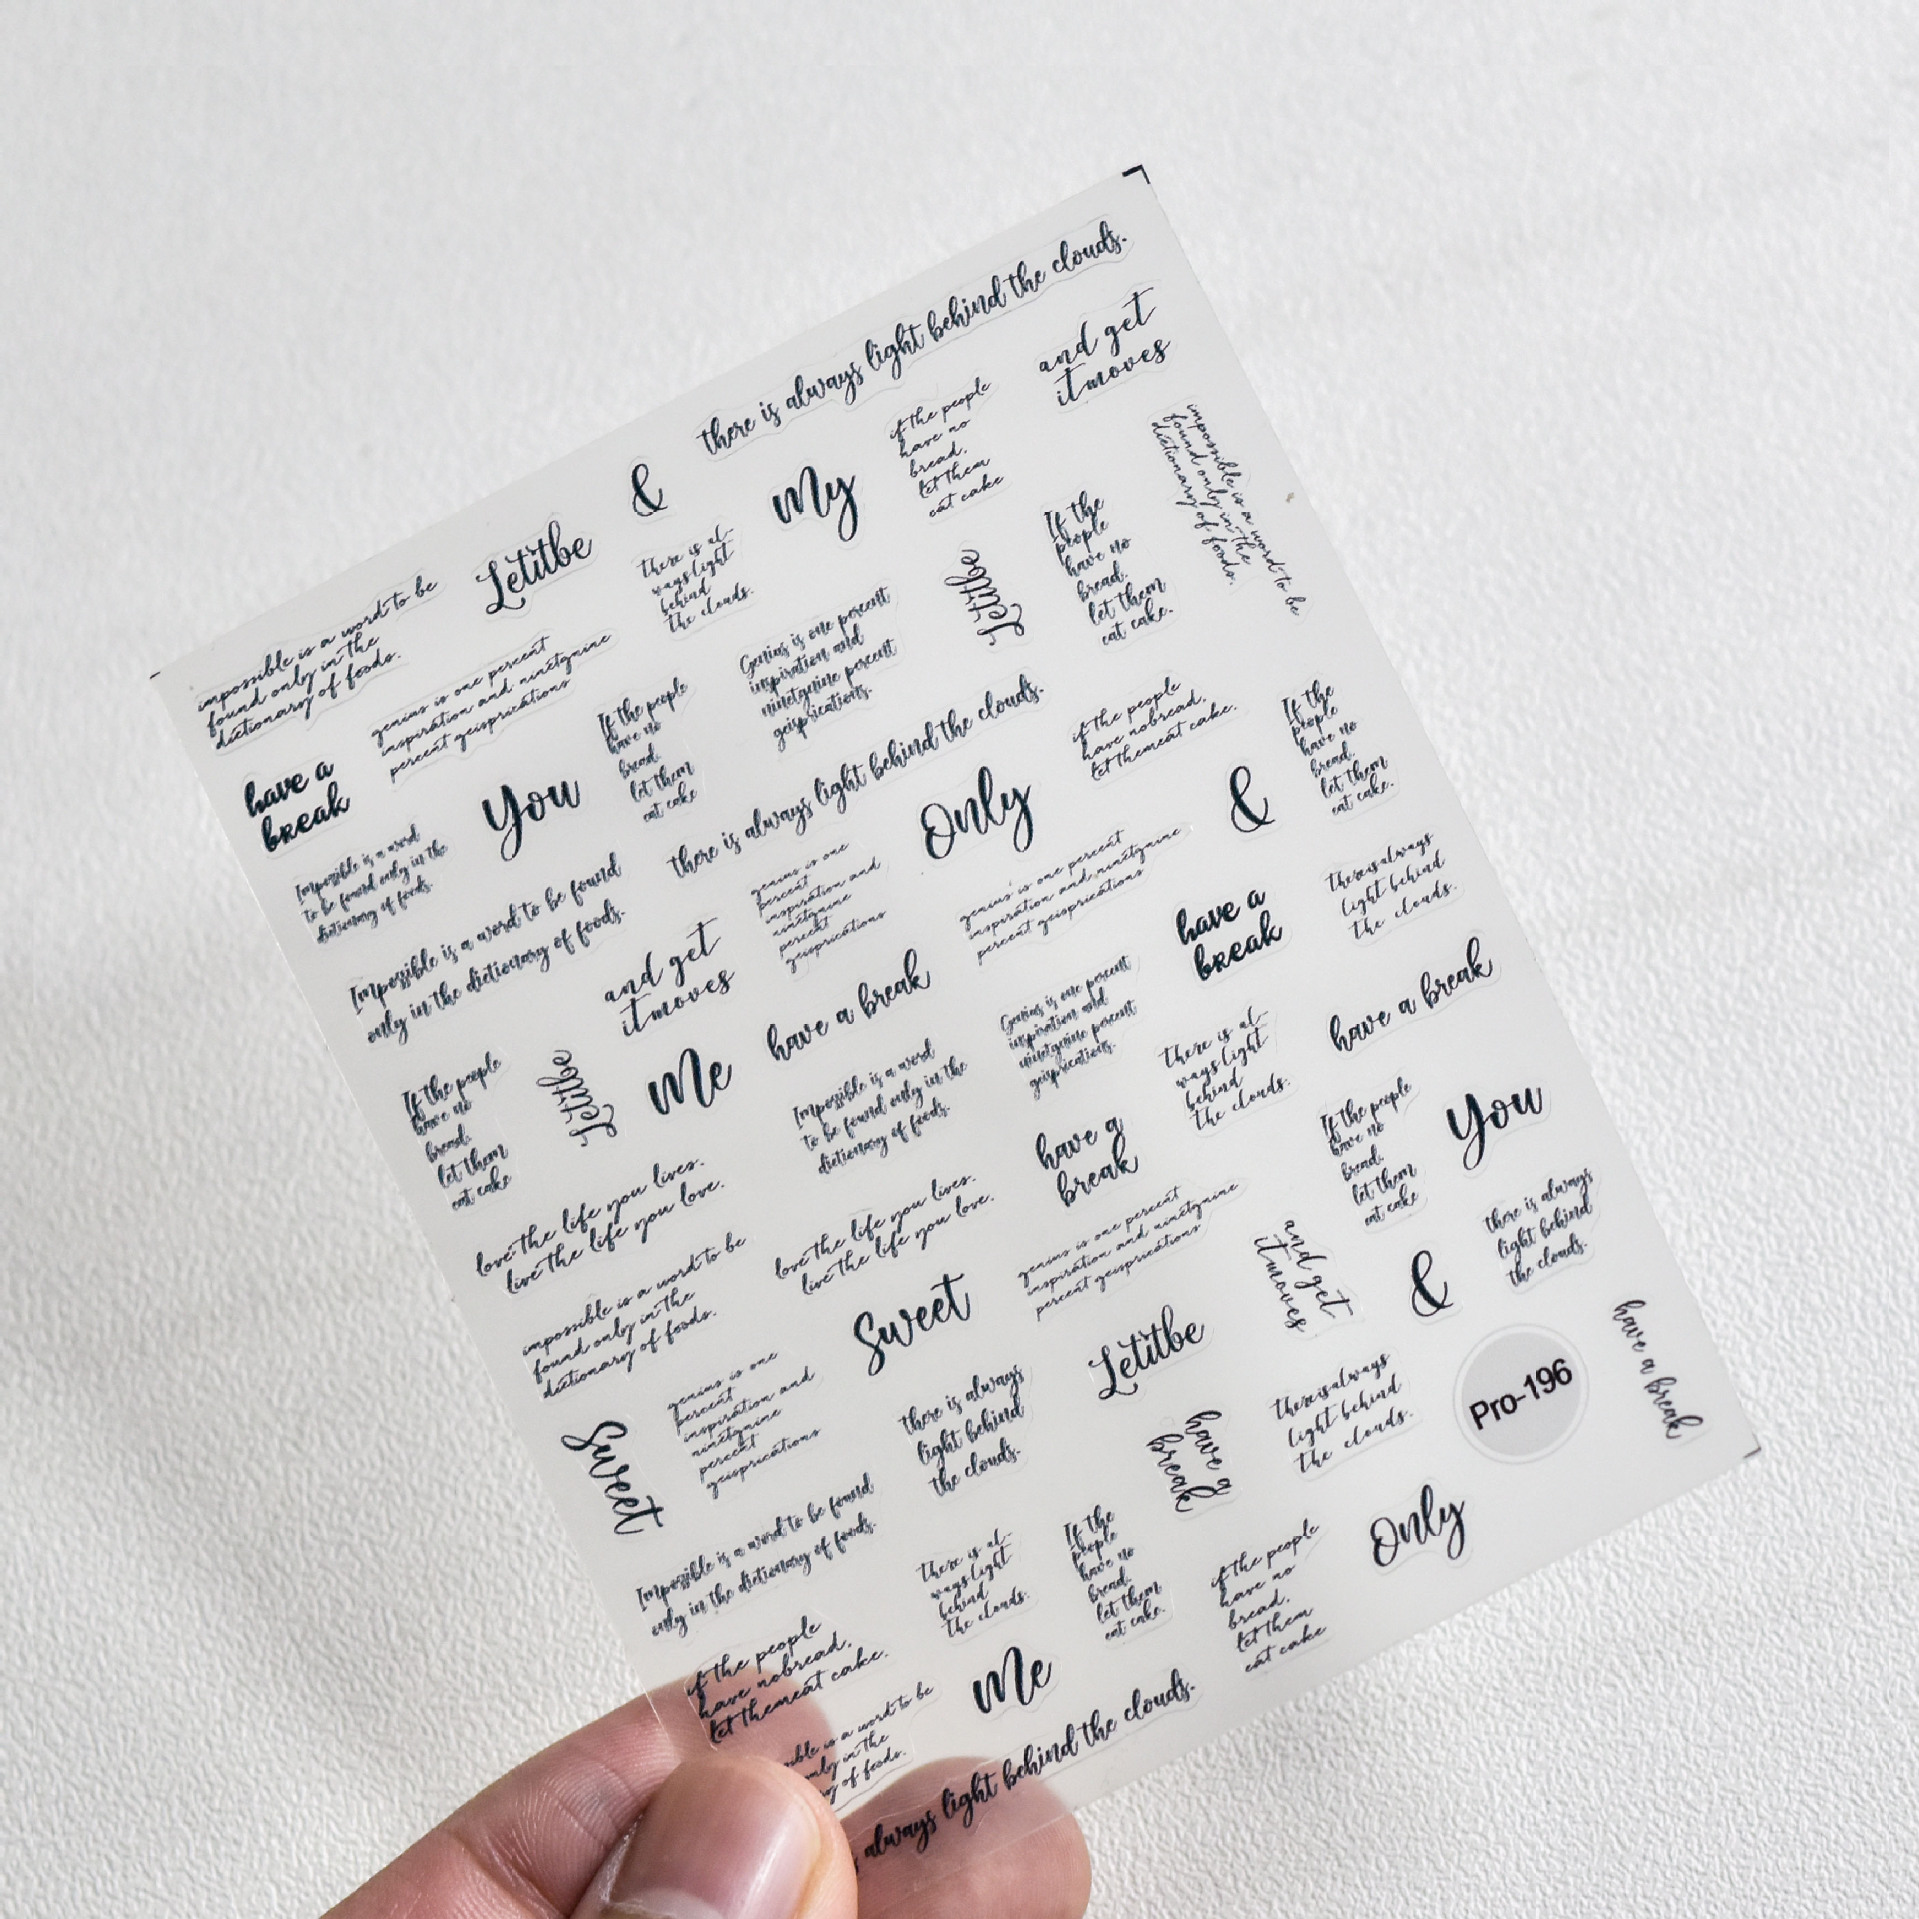 there is always light behind the clouds.
and get
it moves
&
My
if the people
have no
bread,
let them
eat cake
impossible is a word to be
found only in the
dictionary of foods.
Letitbe
There is al-
ways light
behind
the clouds.
Letitbe
If the
people
have no
bread.
let them
eat cake.
impossible is a word to be
found only in the
dictionary of foods.
genius is one percent
inspiration and ninetynine
percent geisprications
Genius is one percent
inspiration and
ninetynine percent
geisprications.
have a
break
You
If the people
have no
bread.
let them
eat cake
there is always light behind the clouds.
if the people
have nobread,
let themeat cake.
If the
people
have no
bread.
let them
eat cake.
Impossible is a word
to be found only in the
dictionary of foods.
Only
&
Impossible is a word to be found
only in the dictionary of foods.
genius is one
percent
inspiration and
ninetynine
percent
geisprications
genius is one percent
inspiration and ninetynine
percent geisprications
have a
break
Thereisalways
light behind
the clouds.
and get
itmoves
have a break
Genius is one percent
inspiration and
ninetynine percent
geisprications.
There is al-
ways light
behind
the clouds.
have a break
If the people
have no
bread.
let them
eat cake
Letitbe
Me
Impossible is a word
to be found only in the
dictionary of foods.
have a
break
If the people
have no
bread.
let them
eat cake
You
love the life you lives.
live the life you love.
love the life you lives.
live the life you love.
genius is one percent
inspiration and ninetynine
percent geisprications
and get
itmoves
there is always
light behind
the clouds.
impossible is a word to be
found only in the
dictionary of foods.
Sweet
Letitbe
&
have a break
Sweet
genius is one
percent
inspiration and
ninetynine
percent
geisprications
there is always
light behind
the clouds.
have a
break
Thereisalways
light behind
the clouds.
Pro-196
Impossible is a word to be found
only in the dictionary of foods.
There is al-
ways light
behind
the clouds.
If the
people
have no
bread.
let them
eat cake.
if the people
have no
bread,
let them
eat cake
Only
if the people
have nobread,
let themeat cake.
Me
is a word to be
only in the
of foods.
always light behind the clouds.